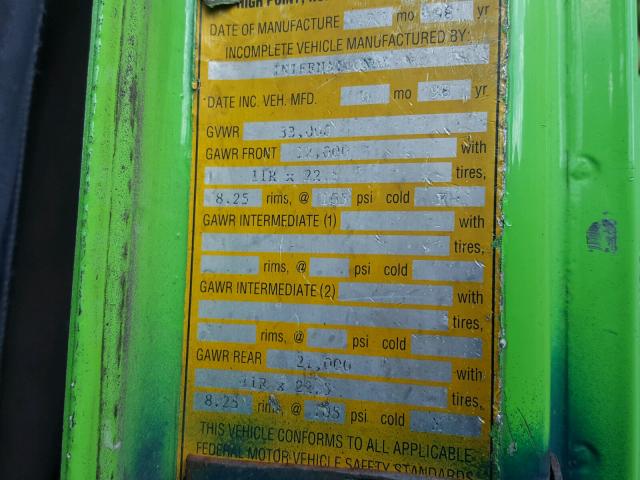 HIGH POINT,
DATE OF MANUFACTURE mo 98 yr
INCOMPLETE VEHICLE MANUFACTURED BY:
INTERNATIONAL
DATE INC. VEH. MFD. mo 98 yr
GVWR 33,000
GAWR FRONT 12,000 with
11R x 22.5 tires,
8.25 rims, @ 105 psi cold X
GAWR INTERMEDIATE (1) with
tires,
rims, @ psi cold
GAWR INTERMEDIATE (2) with
tires,
rims, @ psi cold
GAWR REAR 21,000 with
11R x 22.5 tires,
8.25 rims, @ 105 psi cold X
THIS VEHICLE CONFORMS TO ALL APPLICABLE
FEDERAL MOTOR VEHICLE SAFETY STANDARDS